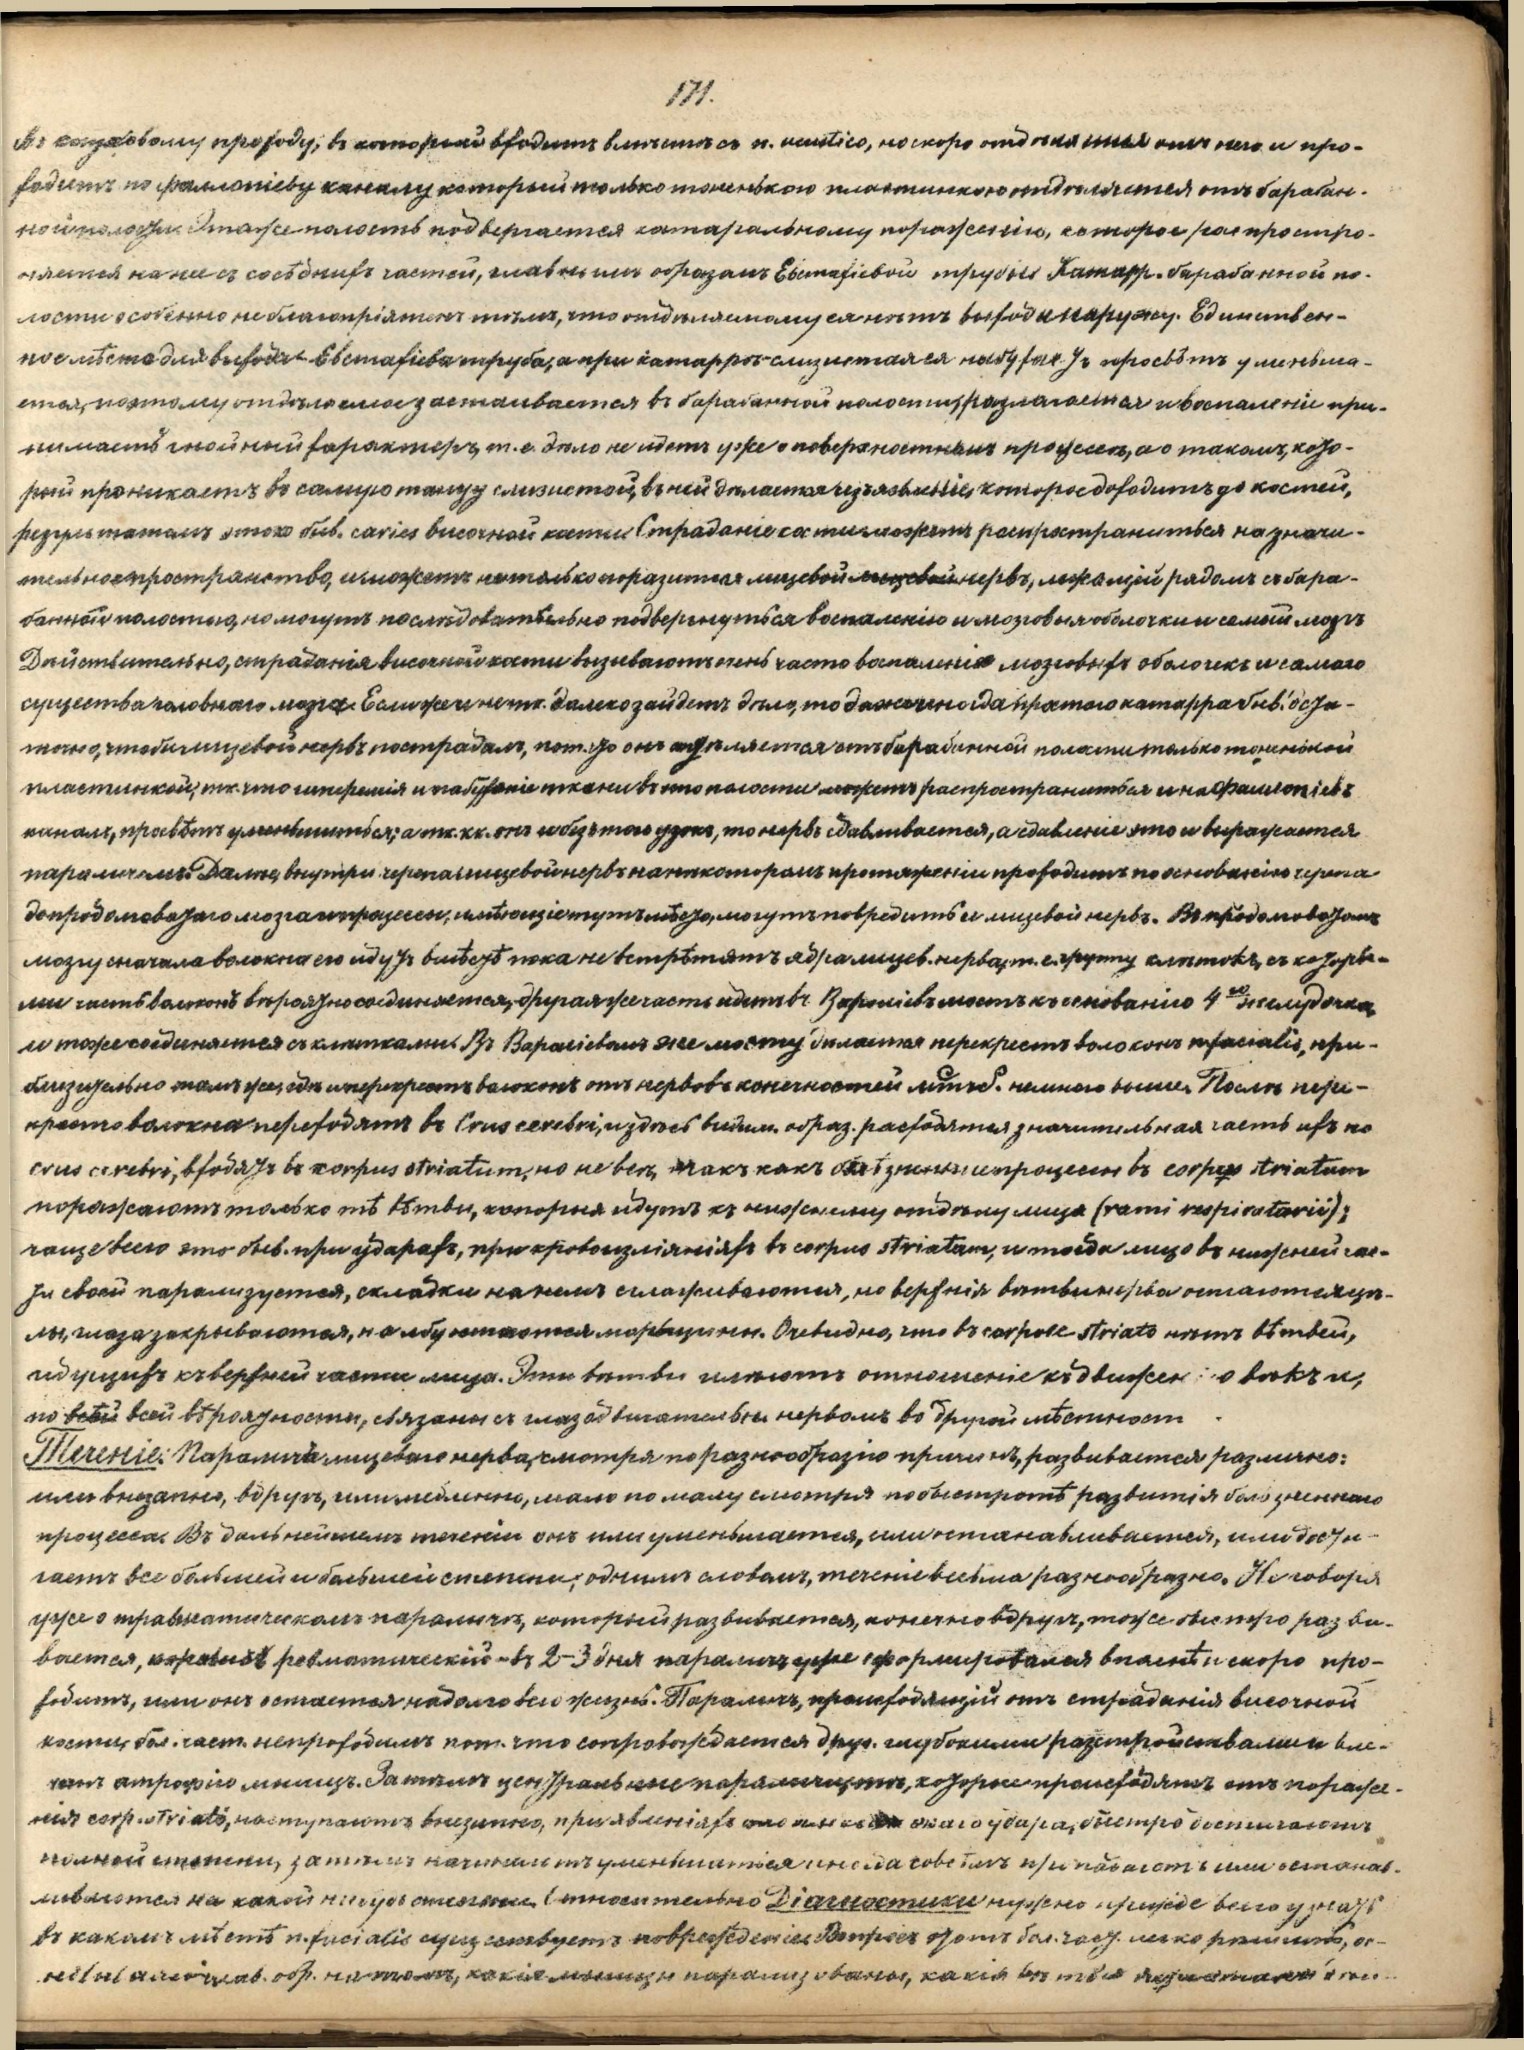 171.
слуховому проходу, въ который входитъ вмѣстѣ съ n. acustico, но скоро отдѣляется отъ него и про-
ходитъ по фаллопіеву каналу который только тоненькою пластинкою отдѣляется отъ барабан-
ной полости. Эта же полость подвергается катаральному пораженію, которое распростра-
няется на нее съ сосѣднихъ частей, главнымъ образомъ Евстафіевой трубы. Катарръ барабанной по-
лости особенно неблагопріятенъ тѣмъ, что отдѣляемому ея нѣтъ выхода наружу. Единствен-
ное мѣсто для выхода - Евстафіева труба, а при катаррѣ слизистая ея набухаетъ просвѣтъ уменьша-
ется, поэтому отдѣляемое застаивается въ барабанной полости, разлагается и воспаленіе при-
нимаетъ гнойный характеръ, т.е. дѣло не идетъ уже о поверхностномъ процессѣ, а о такомъ, кото-
рый проникаетъ въ самую толщу слизистой, въ ней дѣлается изъязвленіе, которое доходитъ до костей,
результатомъ этого быв. caries височной кости. Страданіе кости можетъ распространиться на значи-
тельное пространство, и можетъ не только поразиться лицевой нервъ, лежащій рядомъ съ бара-
банной полостью, но могутъ послѣдовательно подвергнуться воспаленію и мозговыя оболочки и самый мозгъ
Дѣйствительно, страданія височной кости вызываютъ очень часто воспаленія мозговыхъ оболочекъ и самаго
существа головнаго мозга. Если же и не тк. далеко зайдетъ дѣло, то даже иногда простого катарра быв. доста-
точно, чтобы лицевой нервъ пострадалъ, пот. что онъ отдѣляется отъ барабанной полости только тоненькой
пластинкой, тк. что гиперемія и набуханіе ткани въ этой полости можетъ распространиться и на Фаллопіевъ
каналъ, просвѣтъ уменьшиться; а тк. кк. онъ и безъ того узокъ, то нервъ сдавливается, а сдавленіе это и выражается
параличемъ. Далѣе, внутри черепа лицевой нервъ на нѣкоторомъ протяженіи проходитъ по основанію черепа
до продолговатаго мозга и процессы, имѣющіе тутъ мѣсто, могутъ повредить и лицевой нервъ. Въ продолговатомъ
мозгу сначала волокна его идутъ вмѣстѣ пока не встрѣтятъ ядра лицев. нерва, т.е. группу клѣтокъ, съ которы-
ми часть волоконъ вѣроятно соединяется, другая же часть идетъ въ Вароліевъ мостъ къ основанію 4го желудочка,
и тоже соединяется съ клѣтками. Въ Вароліевомъ же мосту дѣлается перекрестъ волоконъ n. facialis, при-
близительно тамъ же, гдѣ и перекрестъ волоконъ отъ нервовъ конечностей м. б. немного выше. Послѣ пере-
креста волокна переходятъ въ Crus cerebri, и здѣсь видим. образ. расходятся значительная часть ихъ по
crus cerebri, входятъ въ corpus striatum, но не всѣ, такъ какъ болѣзненные процессы въ corpus striatum
поражаютъ только тѣ вѣтви, которыя идутъ къ нижнему отдѣлу лица (rami respiratorii);
чаще всего это быв. при ударахъ, при кровоизліяніяхъ въ corpus striatum, и тогда лицо въ нижней час-
ти своей парализуется, складки на немъ сглаживаются, но верхнія вѣтви нерва остаются цѣ-
лы, глаза закрываются, на лбу остаются морщины. Очевидно, что въ corpore striato нѣтъ вѣтвей,
идущихъ къ верхней части лица. Эти вѣтви имѣютъ отношеніе къ движенію вѣкъ и,
по всей вѣроятности, связаны съ глазодвигательнымъ нервомъ въ другой мѣстности.
Теченіе: Параличъ лицеваго нерва, смотря по разнообразію причинъ, развивается различно:
или внезапно, вдругъ, или медленно, мало по малу смотря по быстротѣ развитія болѣзненнаго
процесса. Въ дальнейшемъ теченіи онъ или уменьшается, или останавливается, или дости-
гаетъ все большей и большей степени; однимъ словомъ, теченіе весьма разнообразно. Не говоря
уже о травматическомъ параличѣ, который развивается, конечно вдругъ, тоже быстро разви-
вается, ревматическій - въ 2-3 дня параличъ уже сформировался вполнѣ и скоро про-
ходитъ, или онъ остается надолго всю жизнь. Параличъ, происходящій отъ страданія височной
кости, бол. част. непроходимъ пот. что сопровождается друг. глубокими разстройствами и вле-
четъ атрофію мышцъ. Затѣмъ центральные параличи, которые происходятъ отъ пораже-
нія corp. striati, наступаютъ внезапно, при явленіяхъ удара, быстро достигаютъ
полной степени, затѣмъ начинаютъ уменьшаться иногда совсѣмъ пропадаютъ или останав-
ливаются на какой нибудь степени. Относительно Діагностики нужно прежде всего узнать
въ какомъ мѣстѣ n. facialis существуетъ поврежденіе. Вопросъ этотъ бол. част. легко рѣшить, ос-
глав. обр. на томъ, какія мышцы парализованы, какія